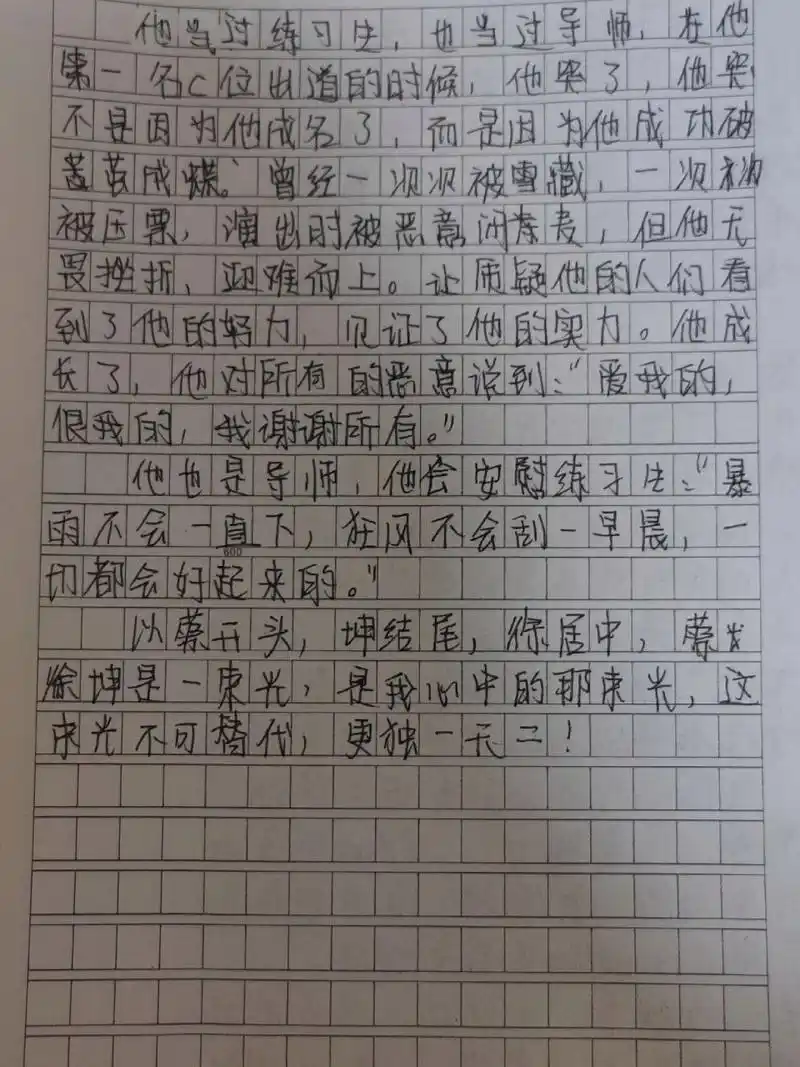 他当过练习生，也当过导师，在他
第一名C位出道的时候，他哭了，他哭
不是因为他成名了，而是因为他成功破
茧成蝶。曾经一次次被雪藏，一次次
被压票，演出时被恶意闭麦，但他无
畏挫折，迎难而上。让质疑他的人们看
到了他的努力，见证了他的实力。他成
长了，他对所有的恶意说到：“爱我的，
恨我的，我谢谢所有。”
他也是导师，他会安慰练习生：“暴
雨不会一直下，狂风不会刮一早晨，一
切都会好起来的。”
600
以蔡开头，坤结尾，徐居中，蔡
徐坤是一束光，是我心中的那束光，这
束光不可替代，更独一无二！